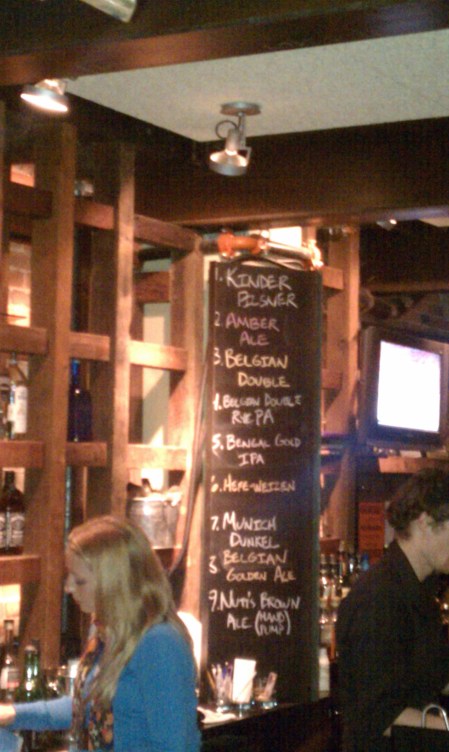 1. KINDER
PILSNER
2 AMBER
ALE
3. BELGIAN
DOUBLE
4. BELGIAN DOUBLE
RYE PA
5. BENGAL GOLD
IPA
6. HEFE-WEIZEN
7. MUNICH
DUNKEL
8 BELGIAN
GOLDEN ALE
9. NUTT'S BROWN
ALE (HAND
PUMP)